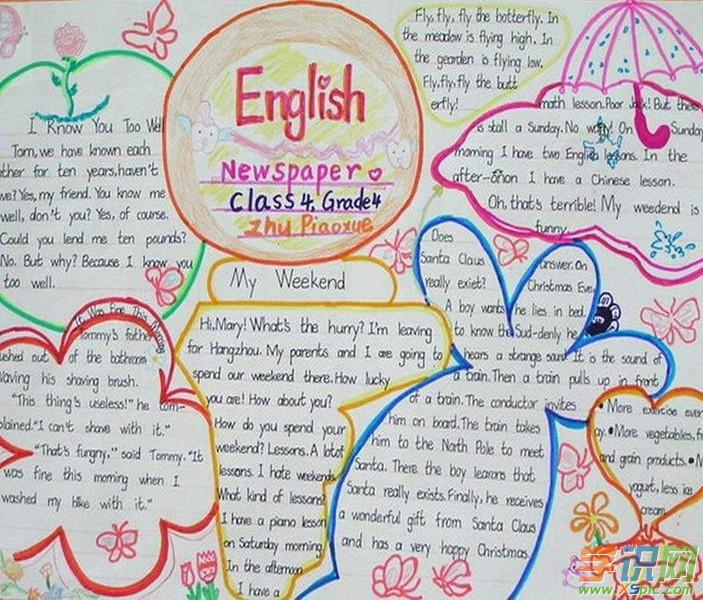 English
Newspaper
Class 4. Grade 4
Zhu Piaoxue
Fly, fly, fly the botterfly. In
the meadow is flying high. In
the gearden is flying low.
Fly, fly, fly the butt
erfly!
I Know You Too Well
Tom, we have known each
ther for ten years, haven't
we? Yes, my friend. You know me
well, don't you? Yes, of course.
Could you lend me ten pounds?
No. But why? Because I know you
too well.
It Was Fine This Morning
Tommy's father
ushed out of the bathroom
waving his shaving brush.
"This thing's useless!" he com-
plained. "I can't shave with it."
"That's fungny," said Tommy. "It
was fine this morning when I
washed my bike with it."
My Weekend
Hi, Mary! What's the hurry? I'm leaving
for Hangzhou. My parents and I are going to
spend our weekend there. How lucky
you are! How about you?
How do you spend your
weekend? Lessons. A lot of
lessons. I hate weekends
What kind of lessons
I have a piano lesson
on Saturday morning.
In the afternoon
I have a
math lesson. Poor Jack! But there
is stall a Sunday. No way! On Sunday
morning I have two English lessons. In the
after-onon I have a Chinese lesson.
Oh, that's terrible! My weedend is
funny.
Does
Santa Claus
really exiet?
A boy wants
to know the
answer. On
Christmas Eve,
he lies in bed.
Sud-denly he
hears a strange sound. It is the sound of
a train. Then a train pulls up in front
of a train. The conductor invites
him on board. The train takes
him to the North Pole to meet
Santa. There the boy learons that
Santa really exists. Finally, he receives
a wonderful gift from Santa Claus
and has a very happy Christmas.
• More exercise ever
ay. • More vegetables, fr
and grain products. • M
yogurt, less ice
cream.
学识网
www.XSpic.com